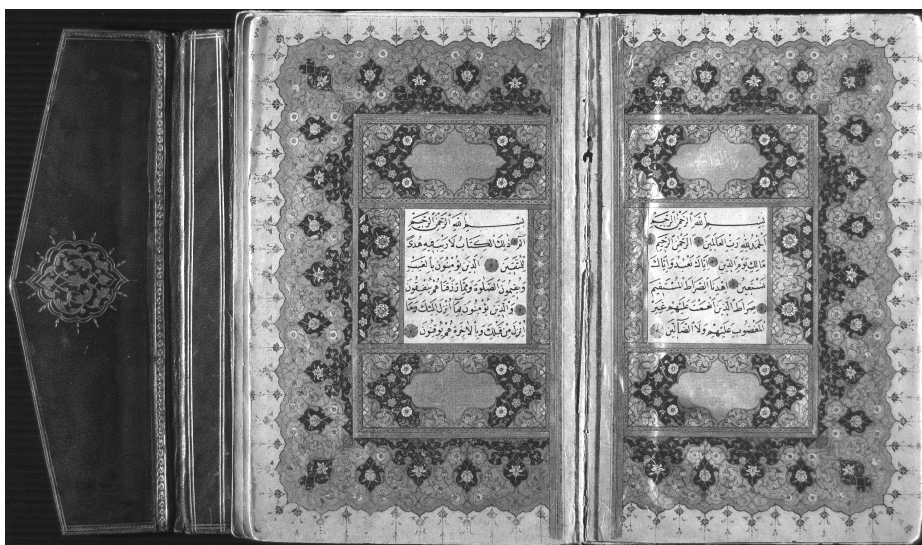 بسم الله الرحمن الرحيم
الحمد لله رب العالمين الرحمن الرحيم
مالك يوم الدين اياك نعبد واياك
نستعين اهدنا الصراط المستقيم
صراط الذين انعمت عليهم غير
المغضوب عليهم ولا الضالين
بسم الله الرحمن الرحيم
الم ذلك الكتاب لا ريب فيه هدى
للمتقين الذين يؤمنون بالغيب
ويقيمون الصلوة ومما رزقناهم ينفقون
والذين يؤمنون بما انزل اليك وما
انزل من قبلك وبالاخرة هم يوقنون